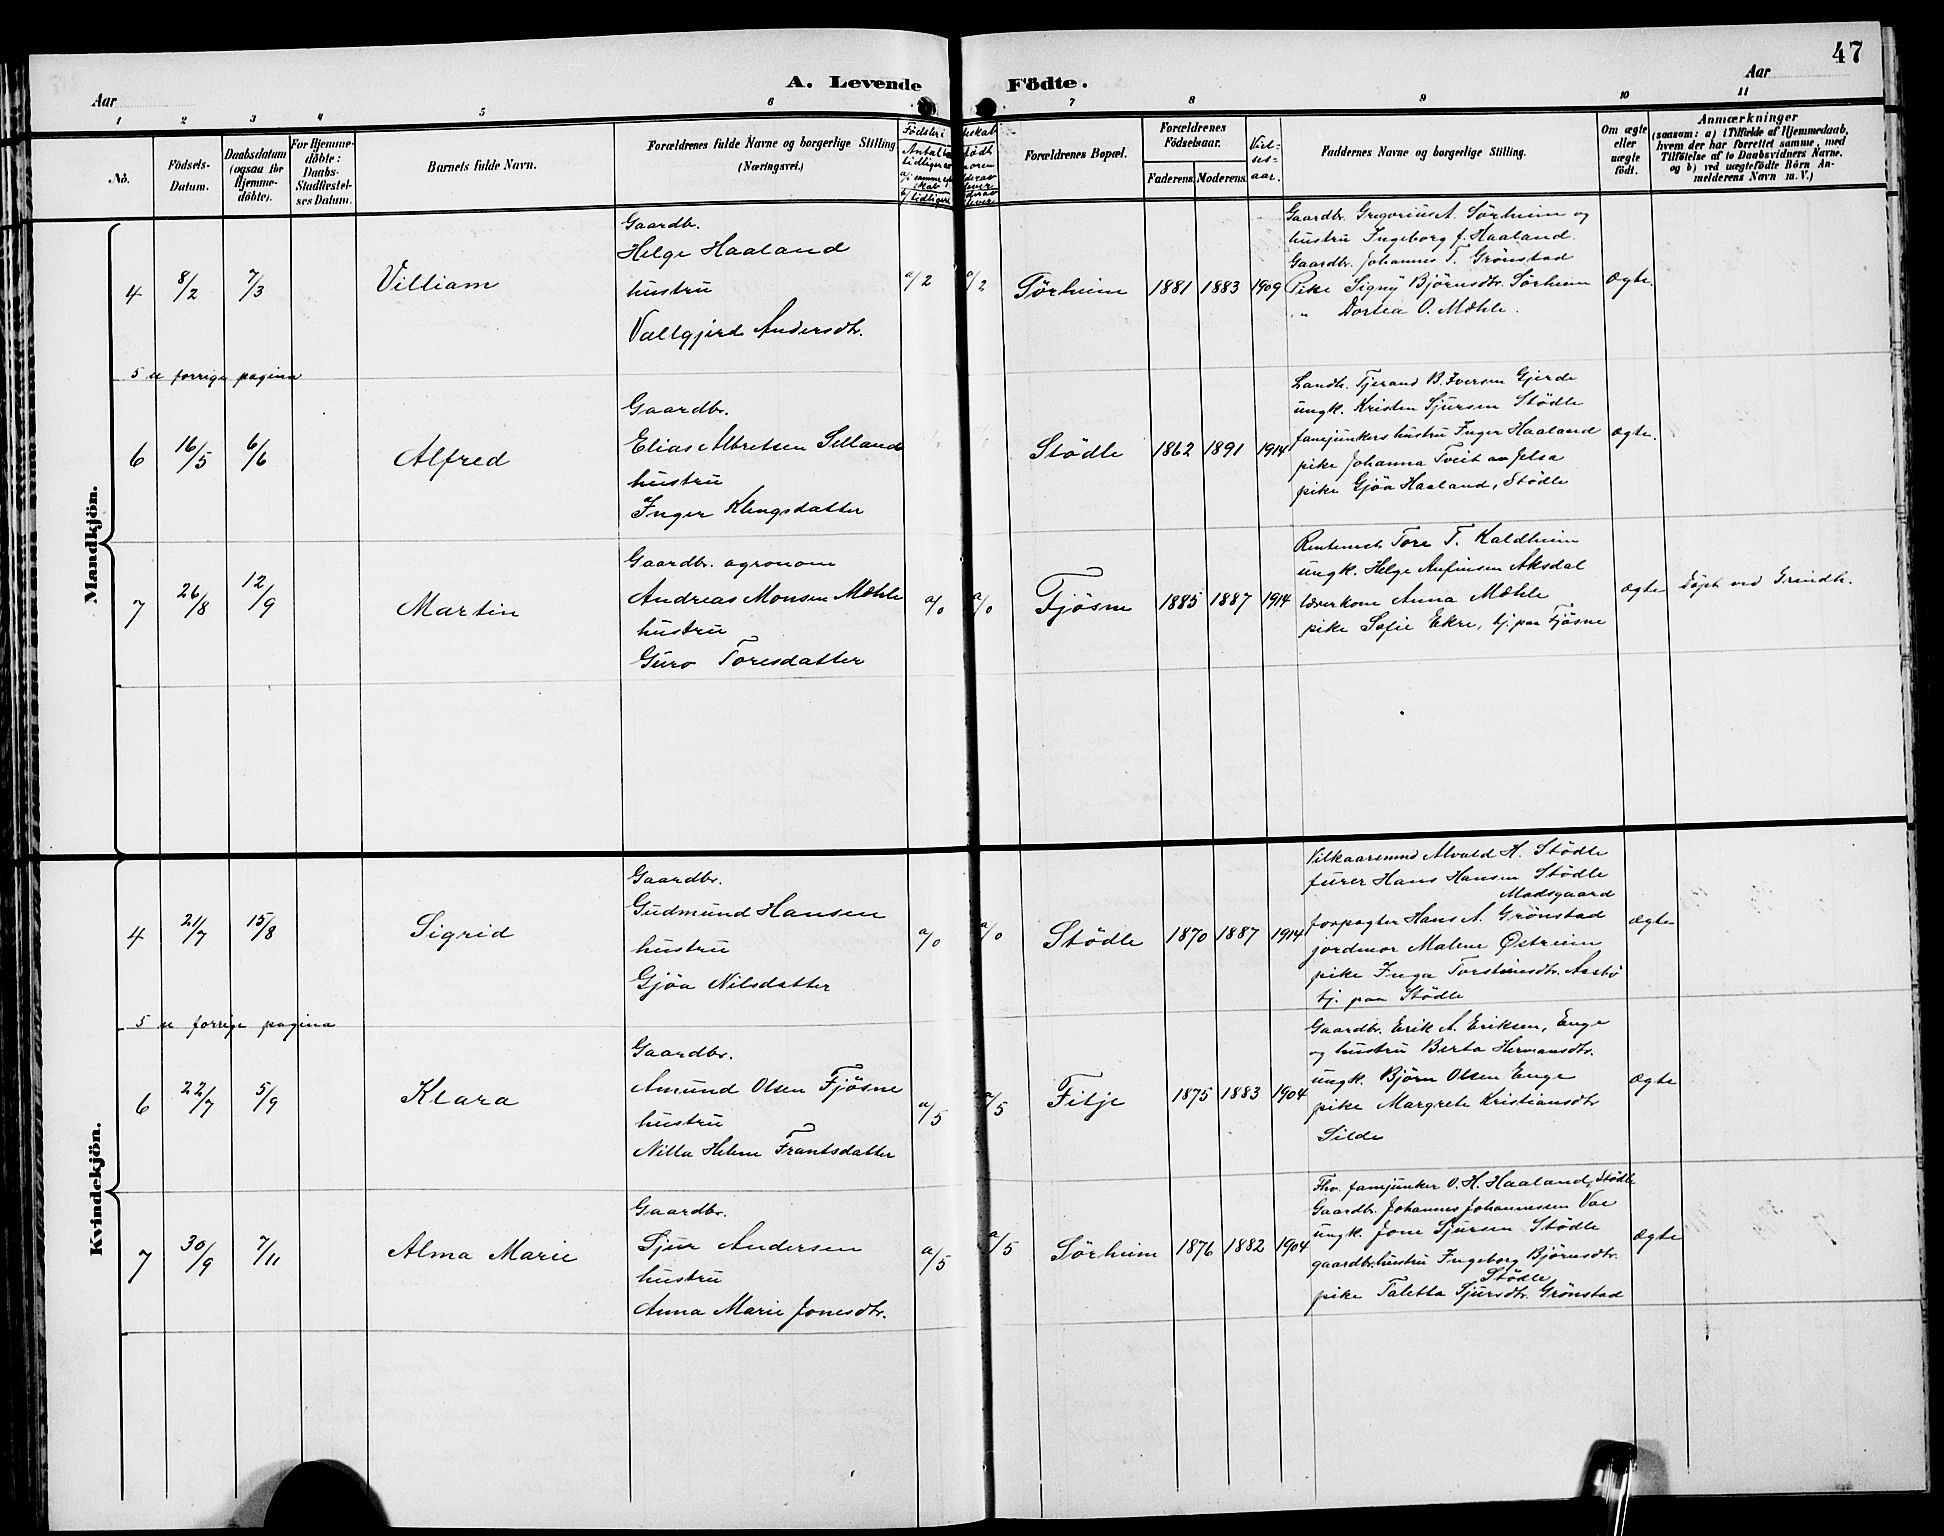 47
A. Levende Födte.
Aar
Aar
1 2 3 4 5 6 7 8 9 10 11
No.
Födsels-
Datum.
Daabsdatum
(ogsaa for
Hjemme-
döbte).
For Hjemme-
döbte:
Daabs-
Stadfæstel-
ses Datum.
Barnets fulde Navn.
Forældrenes fulde Navne og borgerlige Stilling
(Næringsvei.)
Forældrenes Bopæl.
Forældrenes
Födselsaar.
Faderens. Moderens.
Viel-
ses-
aar.
Faddernes Navne og borgerlige Stilling.
Om ægte
eller
uægte
födt.
Anmærkninger
(saasom: a) i Tilfælde af Hjemmedaab,
hvem der har forrettet samme, med
Tilföielse af to Daabsvidners Navne,
og b) ved uægtefödte Börn An-
melderens Navn m. V.)
Mandkjön.
4 8/2 7/3 Villiam
Gaardbr.
Helge Haaland
hustru
Vallgjerd Andersdtr.
a/2 a/2 Sørheim 1881 1883 1909
Gaardbr. Gregorius A. Sørheim og
hustru Ingeborg f. Haaland.
Gaardbr. Johannes T. Grönstad
Pike Signy Björnsdtr. Sørheim
" Dortea O. Mæhle.
Ægte.
5 se forrige pagina
6 16/5 6/6 Alfred
Gaardbr.
Elias Albretsen Selland
hustru
Inger Klengsdatter
Stödle 1862 1891 1914
Landh. Tjerand B. Iversen Gjerde
ungk. Kristen Sjursen Stödle
fanejunkers hustru Inger Haaland
pike Johanna Tveit av Jelsa
pike Gjöa Haaland, Stödle
ægte.
7 26/8 12/9 Martin
Gaardbr. agronom
Andreas Monsen Mæhle
hustru
Guro Toresdatter
a/0 a/0 Fjösne 1885 1887 1914
Rentemst. Tore T. Kaldheim
ungk. Helge Anfinsen Aksdal
lærerkone Anna Mæhle
pike Sofie Ekre, tj. paa Fjösne
ægte
Döpt ved Grindh.
Kvindekjön.
4 21/7 15/8 Sigrid
Gaardbr.
Gudmund Hansen
hustru
Gjöa Nilsdatter
a/0 a/0 Stödle 1870 1887 1914
Vilkaarsmand Alvald H. Stödle
furer Hans Hansen Stödle
Madsgaard
forpagter Hans A. Grönstad
jordmor Malene Østreim
pike Inga Torsteinsdtr. Aarbö
tj. paa Stödle
ægte
5 se forrige pagina
6 22/7 5/9 Klara
Gaardbr.
Amund Olsen Fjösne
hustru
Nilla Helene Frantsdatter
a/5 a/5 Fitje 1875 1883 1904
Gaardbr. Erik A. Eriksen, Enge
og hustru Berta Hermansdtr.
ungk. Björn Olsen Enge
pike Margrete Kristiansdtr
Silde
Ægte
7 30/9 7/11 Alma Marie
Gaardbr.
Sjur Andersen
hustru
Anna Marie Jonesdtr.
a/5 a/5 Sørheim 1876 1882 1904
Fhv. fanejunker O. H. Haaland, Stödle
Gaardbr. Johannes Johannessen Vae
ungk. Jone Sjursen Stödle
gaardbr.hustru Ingeborg Björnsdtr.
Stödle
pike Taletta Sjursdtr. Grönstad
ægte